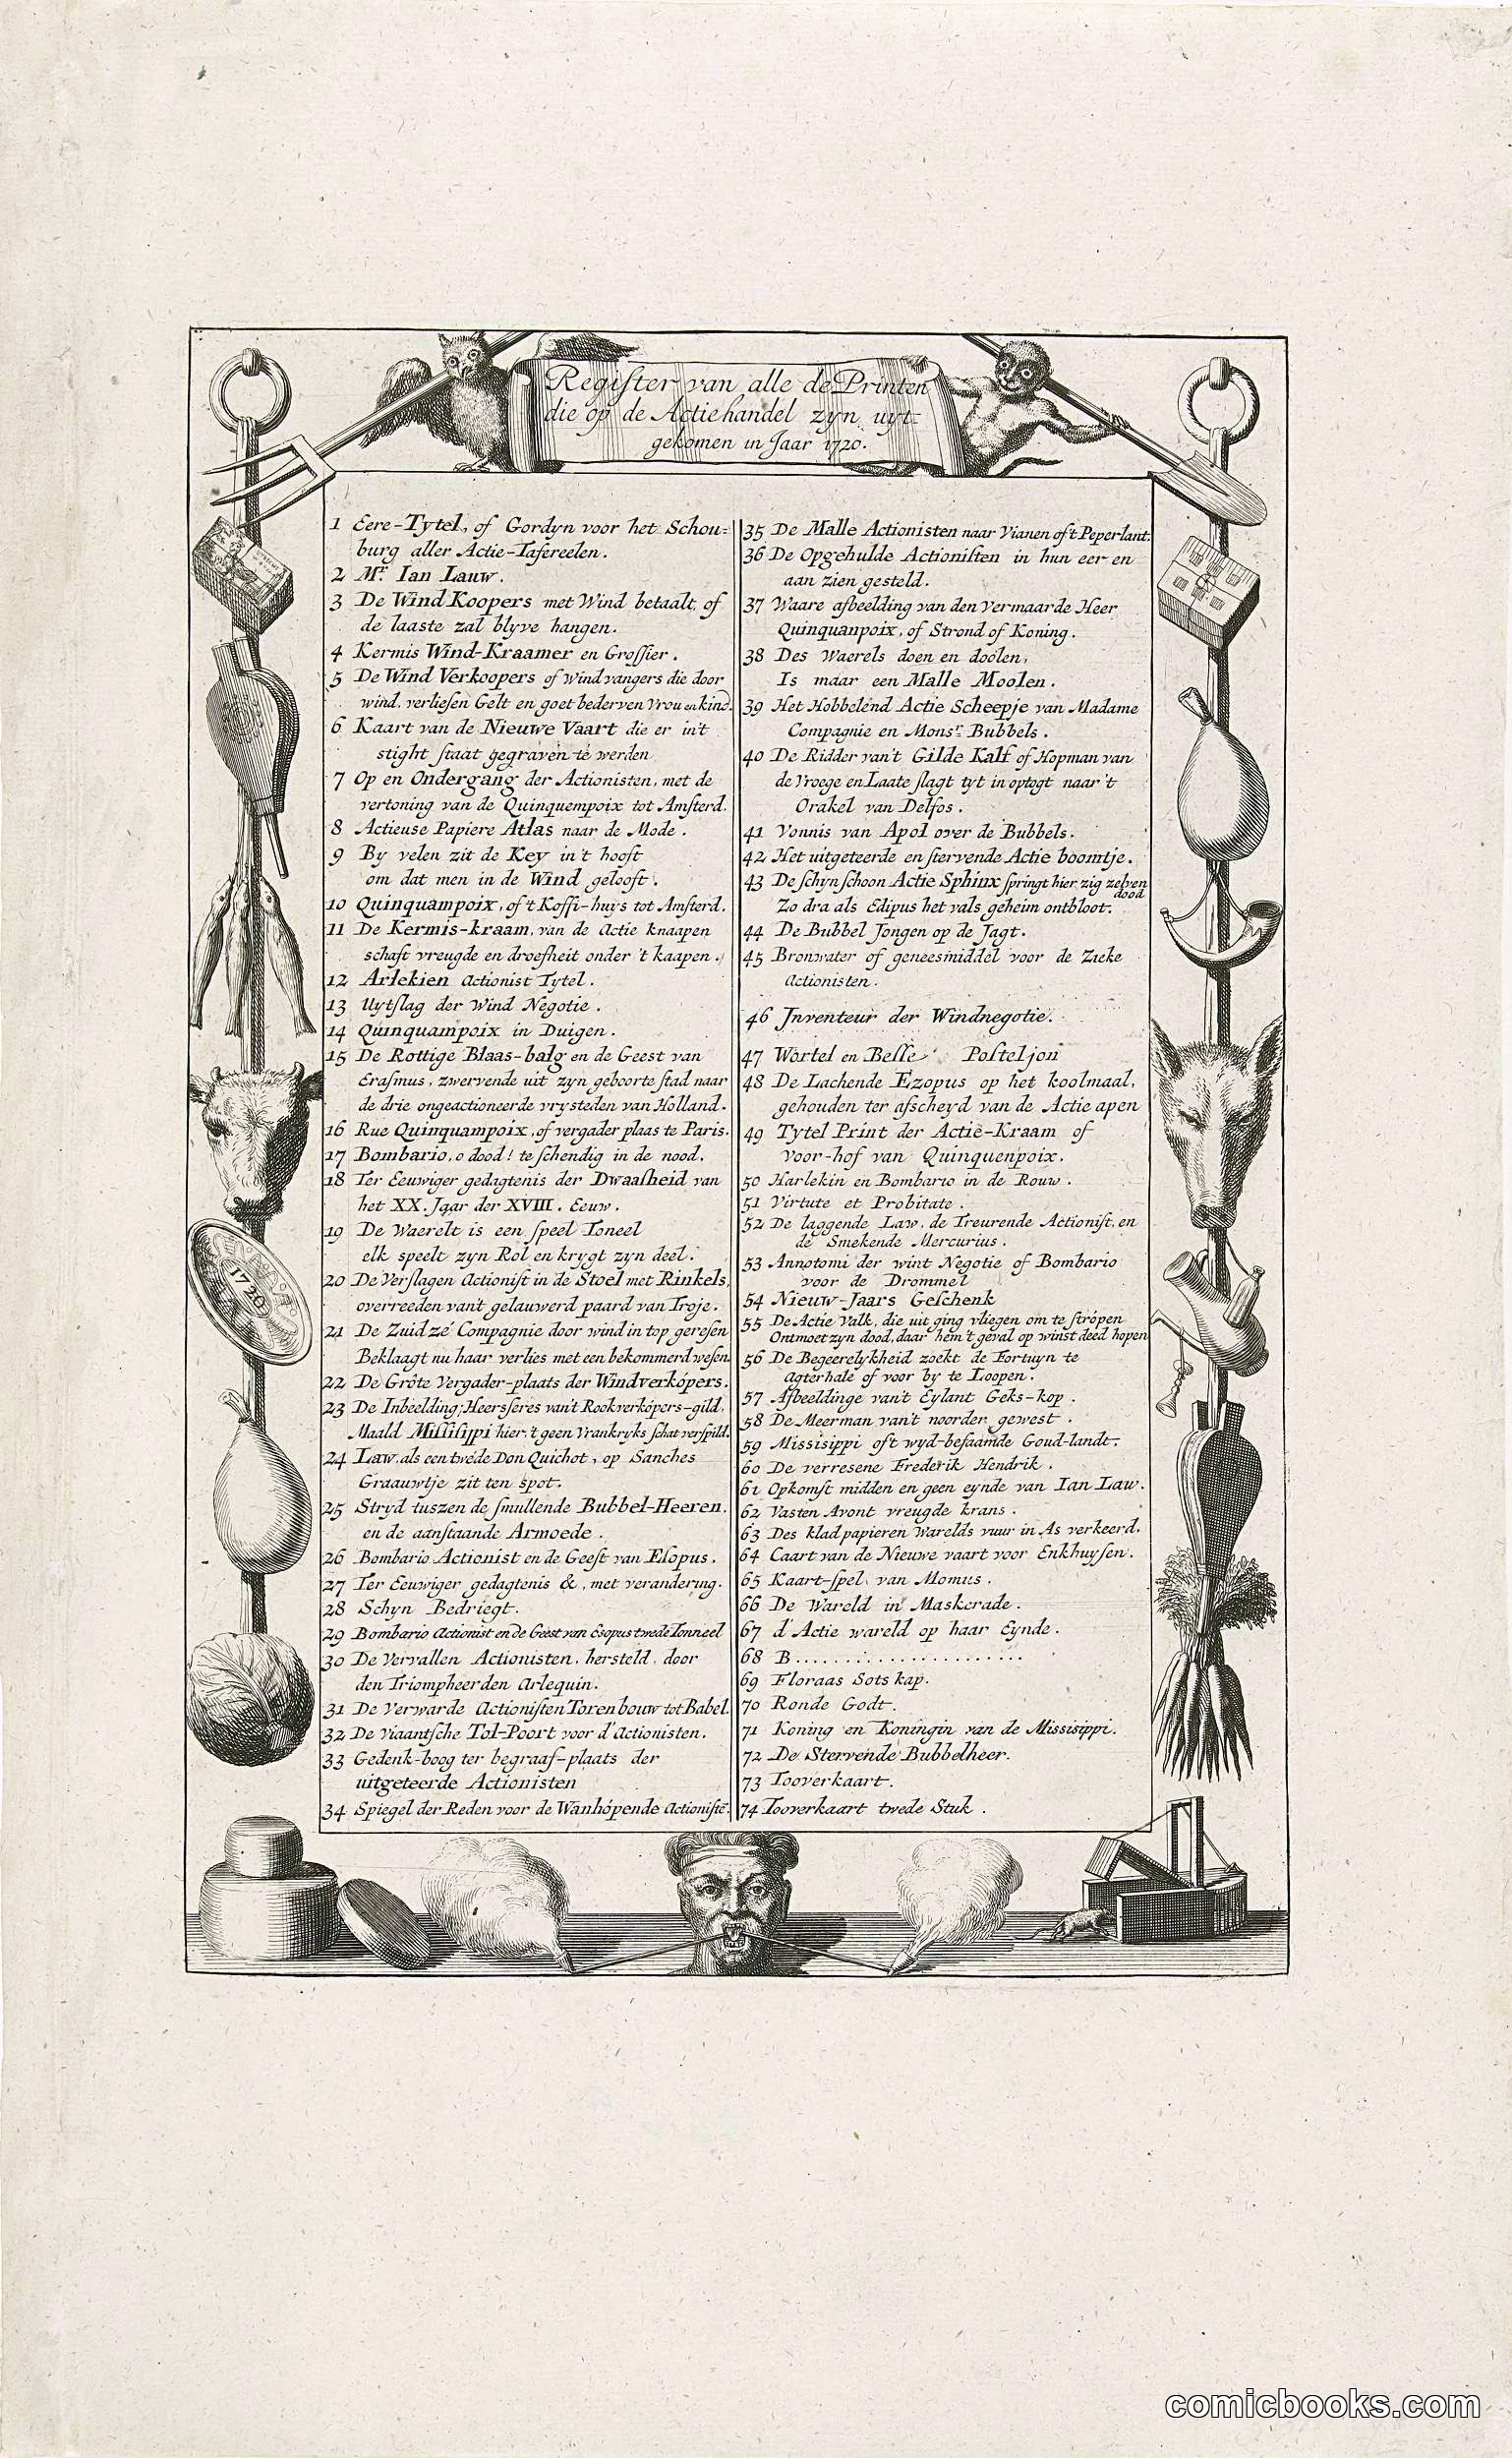 Register van alle de Printen
die op de Actiehandel zyn uyt-
gekomen in Jaar 1720.
1 Eere-Tytel, of Gordyn voor het Schou=
burg aller Actie-Tafereelen.
2 Mr. Ian Lauw.
3 De Wind Koopers met Wind betaalt, of
de laaste zal blyve hangen.
4 Kermis Wind-Kraamer en Grossier.
5 De Wind Verkoopers of Windvangers die door
wind, verliesen Gelt en goet bederven Vrou en kind.
6 Kaart van de Nieuwe Vaart die er in't
stight staat gegraven te werden
7 Op en Ondergang der Actionisten, met de
vertoning van de Quinquempoix tot Amsterd.
8 Actieuse Papiere Atlas naar de Mode.
9 By velen zit de Key in't hooft
om dat men in de Wind gelooft.
10 Quinquampoix, of't Koffi-huys tot Amsterd.
11 De Kermis-kraam, van de Actie knaapen
schaft vreugde en droefheit onder 't kaapen.
12 Arlekien Actionist Tytel.
13 Uytslag der Wind Negotie.
14 Quinquampoix in Duigen.
15 De Rottige Blaas-balg en de Geest van
Erasmus, zwervende uit zyn geboorte stad naar
de drie ongeactioneerde vrysteden van Holland.
16 Rue Quinquampoix, of vergader plaas te Paris.
17 Bombario, o dood! te schendig in de nood.
18 Ter Eeuwiger gedagtenis der Dwaasheid van
het XX. Jaar der XVIII. Eeuw.
19 De Waerelt is een speel Toneel
elk speelt zyn Rol en krygt zyn deel.
20 De Verslagen Actionist in de Stoel met Rinkels,
overreeden van't gelauwerd paard van Troje.
21 De Zuid zé Compagnie door wind in top geresen
Beklaagt nu haar verlies met een bekommerd wesen.
22 De Grôte Vergader-plaats der Windverkópers.
23 De Inbeelding; Heersseres van't Rookverkópers-gild,
Maald Missisippi hier, 't geen Vrankryks schat verspild.
24 Law, als een twéde Don Quichot, op Sanches
Graauwtje zit ten spot.
25 Stryd tuszen de smullende Bubbel-Heeren.
en de aanstaande Armoede.
26 Bombario Actionist en de Geest van Esopus.
27 Ter Eeuwiger gedagtenis &, met verandering.
28 Schyn Bedriegt.
29 Bombario Actionist en de Geest van Esopus twede Tonneel
30 De Vervallen Actionisten, hersteld, door
den Triompheerden Arlequin.
31 De Verwarde Actionisten Toren bouw tot Babel.
32 De Viaantsche Tol-Poort voor d'Actionisten.
33 Gedenk-boog ter begraaf-plaats der
uitgeteerde Actionisten
34 Spiegel der Reden voor de Wanhópende Actionistē.
35 De Malle Actionisten naar Vianen of't Peperlant.
36 De Opgehulde Actionisten in hun eer en
aan zien gesteld.
37 Waare afbeelding van den Vermaarde Heer
Quinquanpoix, of Strond of Koning.
38 Des Waerels doen en doolen,
Is maar een Malle Moolen.
39 Het Hobbelend Actie Scheepje van Madame
Compagnie en Monsr. Bubbels.
40 De Ridder van't Gilde Kalf of Hopman van
de Vroege en Laate slagt tyt in optogt naar 't
Orakel van Delfos.
41 Vonnis van Apol over de Bubbels.
42 Het uitgeteerde en stervende Actie boomtje.
43 De schyn schoon Actie Sphinx springt hier zig zelven
dood
Zo dra als Edipus het vals geheim ontbloot.
44 De Bubbel Jongen op de Jagt.
45 Bronwater of geneesmiddel voor de Zieke
Actionisten.
46 Jnventeur der Windnegotie.
47 Wortel en Besse Posteljon
48 De Lachende Ezopus op het koolmaal,
gehouden ter afscheyd van de Actie apen
49 Tytel Print der Actie-Kraam of
Voor-hof van Quinquenpoix.
50 Harlekin en Bombario in de Rouw.
51 Virtute et Probitate.
52 De laggende Law, de Treurende Actionist, en
de Smekende Mercurius.
53 Annotomi der wint Negotie of Bombario
voor de Drommel
54 Nieuw-Jaars Geschenk
55 De Actie Valk, die uit ging vliegen om te strópen
Ontmoet zyn dood, daar hem 't geval op winst deed hopen
56 De Begeerelykheid zoekt de Fortuyn te
agterhale of voor by te Loopen.
57 Afbeeldinge van't Eylant Geks-kop.
58 De Meerman van't noorder gewest.
59 Missisippi oft wyd-befaamde Goud-landt.
60 De verresene Frederik Hendrik.
61 Opkomst midden en geen eynde van Ian Law.
62 Vasten Avont vreugde krans.
63 Des klad papieren Warelds vuur in As verkeerd.
64 Caart van de Nieuwe vaart voor Enkhuysen.
65 Kaart-spel van Momus.
66 De Wareld in Maskerade.
67 d'Actie wareld op haar Eynde.
68 B......................
69 Floraas Sots kap.
70 Ronde Godt.
71 Koning en Koningin van de Missisippi.
72 De Stervende Bubbelheer.
73 Tooverkaart.
74 Tooverkaart twede Stuk.
1720
comicbooks.com